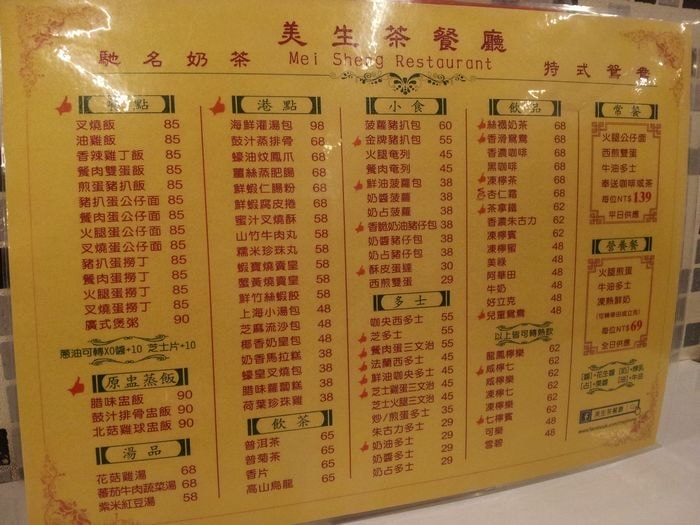 美生茶餐廳
馳名奶茶 Mei Sheng Restaurant 特式鴛鴦
點
叉燒飯 85
油雞飯 85
香辣雞丁飯 85
餐肉雙蛋飯 85
煎蛋豬扒飯 85
豬扒蛋公仔面 85
餐肉蛋公仔面 85
火腿蛋公仔面 85
叉燒蛋公仔面 85
豬扒蛋撈丁 85
餐肉蛋撈丁 85
火腿蛋撈丁 85
叉燒蛋撈丁 85
廣式煲粥 90
蔥油可轉XO醬+10 芝士片+10
原盅蒸飯
腊味盅飯 90
鼓汁排骨盅飯 90
北菇雞球盅飯 90
湯品
花菇雞湯 68
蕃茄牛肉蔬菜湯 68
紫米紅豆湯 58
港點
海鮮灌湯包 98
鼓汁蒸排骨 68
蠔油炆鳳爪 68
薑絲蒸肥腸 68
鮮蝦仁腸粉 68
鮮蝦腐皮捲 68
蜜汁叉燒酥 58
山竹牛肉丸 58
糯米珍珠丸 58
蝦寶燒賣皇 58
蟹黃燒賣皇 58
鮮竹絲蝦餃 58
上海小湯包 48
芝麻流沙包 48
椰香奶皇包 48
奶香馬拉糕 38
蠔皇叉燒包 38
腊味蘿蔔糕 38
荷葉珍珠雞 38
飲茶
普洱茶 65
普菊茶 65
香片 65
高山烏龍 65
小食
菠蘿豬扒包 60
金牌豬扒包 55
火腿奄列 45
餐肉奄列 45
鮮油菠蘿包 38
奶醬菠蘿 38
奶占菠蘿 38
香脆奶油豬仔包 38
奶醬豬仔包 38
奶占豬仔包 38
酥皮蛋撻 30
西煎雙蛋 29
多士
咖央西多士 55
芝多士 55
餐肉蛋三文治 55
法蘭西多士 45
鮮油咖央多士 45
芝士雞蛋三文治 45
芝士火腿三文治 45
炒/煎蛋多士 38
朱古力多士 29
奶油多士 29
奶醬多士 29
奶占多士 29
飲品
絲襪奶茶 68
香滑鴛鴦 68
香濃咖啡 68
黑咖啡 68
凍檸茶 68
杏仁霜 68
茶拿鐵 68
香濃朱古力 62
凍檸賓 62
凍檸蜜 62
美祿 48
阿華田 48
牛奶 48
好立克 48
兒童鴛鴦 48
以上皆可轉熱飲
龍鳳檸樂 62
咸檸七 62
咸檸樂 62
凍檸七 62
凍檸樂 62
七檸賓 62
可樂 48
雪碧 48
常餐
火腿公仔面
西煎雙蛋
牛油多士
奉送咖啡或茶
每位NT$139
平日供應
營養餐
火腿煎蛋
牛油多士
凍熱鮮奶
每位NT$69
全日供應
美生茶餐廳